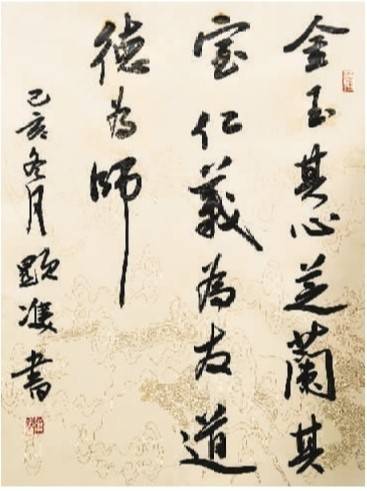 金玉其心芝蘭其
室仁義為友道
德為師
己亥冬月 顯
書